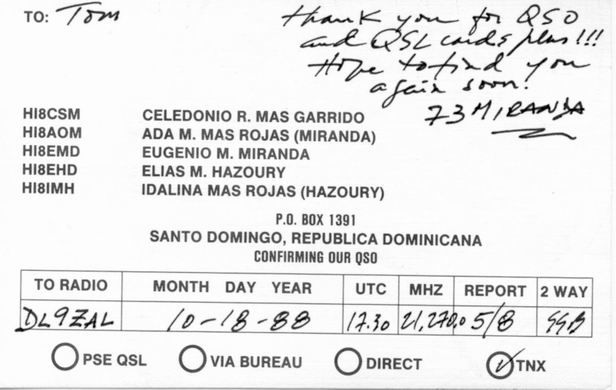 TO: Tom
Thank you for QSO
and QSL cards plus!!!
Hope to find you
again soon!
73 MIRANDA
HI8CSM CELEDONIO R. MAS GARRIDO
HI8AOM ADA M. MAS ROJAS (MIRANDA)
HI8EMD EUGENIO M. MIRANDA
HI8EHD ELIAS M. HAZOURY
HI8IMH IDALINA MAS ROJAS (HAZOURY)
P.O. BOX 1391
SANTO DOMINGO, REPUBLICA DOMINICANA
CONFIRMING OUR QSO
TO RADIO MONTH DAY YEAR UTC MHZ REPORT 2 WAY
DL9ZAL 10-18-88 17.30 21,270.0 5/8 SSB
PSE QSL VIA BUREAU DIRECT TNX